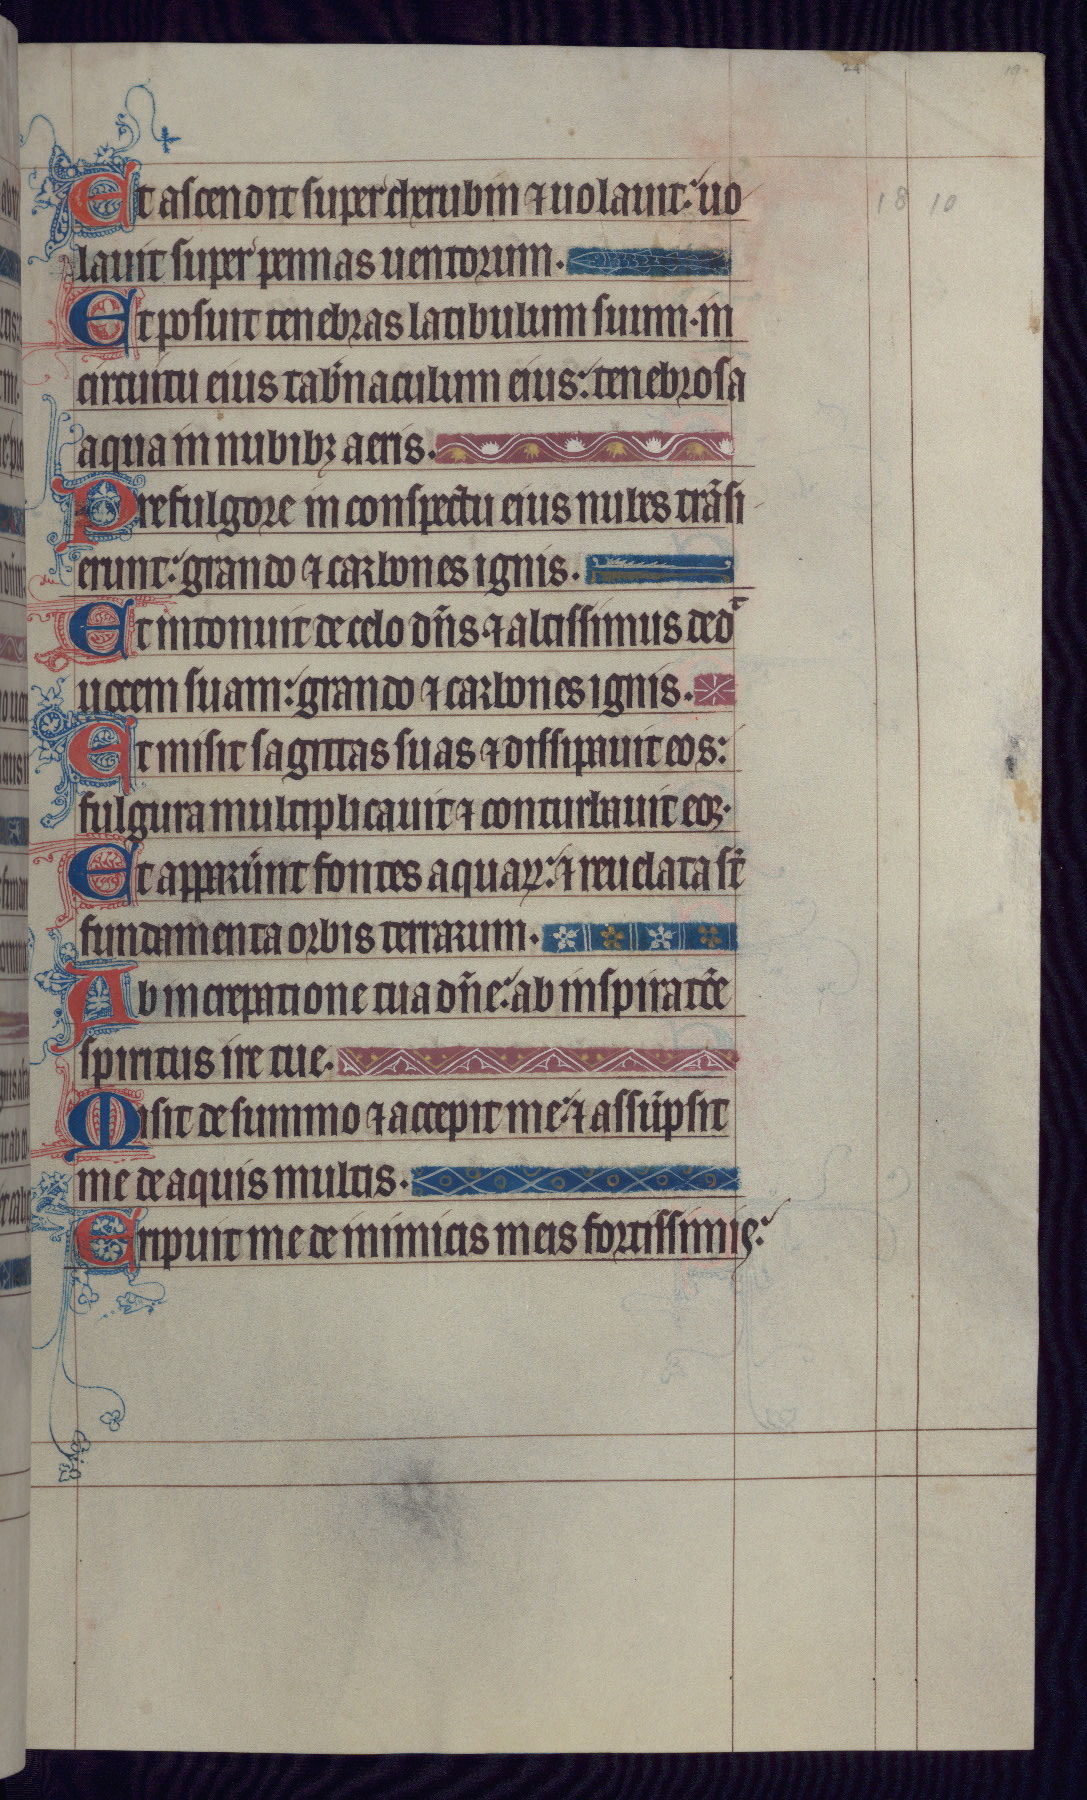 24 19
18 10
Et ascendit super cherubin ⁊ uolauit: uo
lauit super pennas uentorum.
Et posuit tenebras latibulum suum. in
circuitu eius tab̄naculum eius: tenebrosa
aqua in nubibꝫ aeris.
Prefulgore in conspectu eius nubes trāsi
erunt: grando ⁊ carbones ignis.
Et intonuit de celo dn̄s ⁊ altissimus ded̄
uocem suam: grando ⁊ carbones ignis.
Et misit sagittas suas ⁊ dissipauit eos:
fulgura multiplicauit ⁊ conturbauit eos.
Et apparūnt fontes aquaꝝ: ⁊ reuelata st̄
fundamenta orbis terrarum.
Ab increpatione tua dn̄e: ab inspiratōe
spiritus ire tue.
Misit de summo ⁊ accepit me: ⁊ assūpsit
me de aquis multis.
Eripuit me de inimicis meis fortissimis: